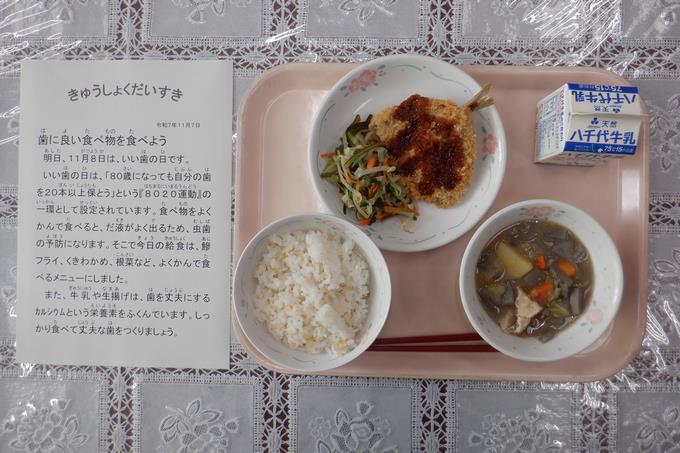 きゅうしょくだいすき
令和7年11月7日
歯に良い食べ物を食べよう
明日、11月8日は、いい歯の日です。
いい歯の日は、「80歳になっても自分の歯
を20本以上保とう」という『8020運動』の
一環として設定されています。食べ物をよく
かんで食べると、だ液がよく出るため、虫歯
の予防になります。そこで今日の給食は、鯵
フライ、くきわかめ、根菜など、よくかんで食
べるメニューにしました。
また、牛乳や生揚げは、歯を丈夫にする
カルシウムという栄養素をふくんでいます。しっ
かり食べて丈夫な歯をつくりましょう。
天然
八千代牛乳
八千代牛乳